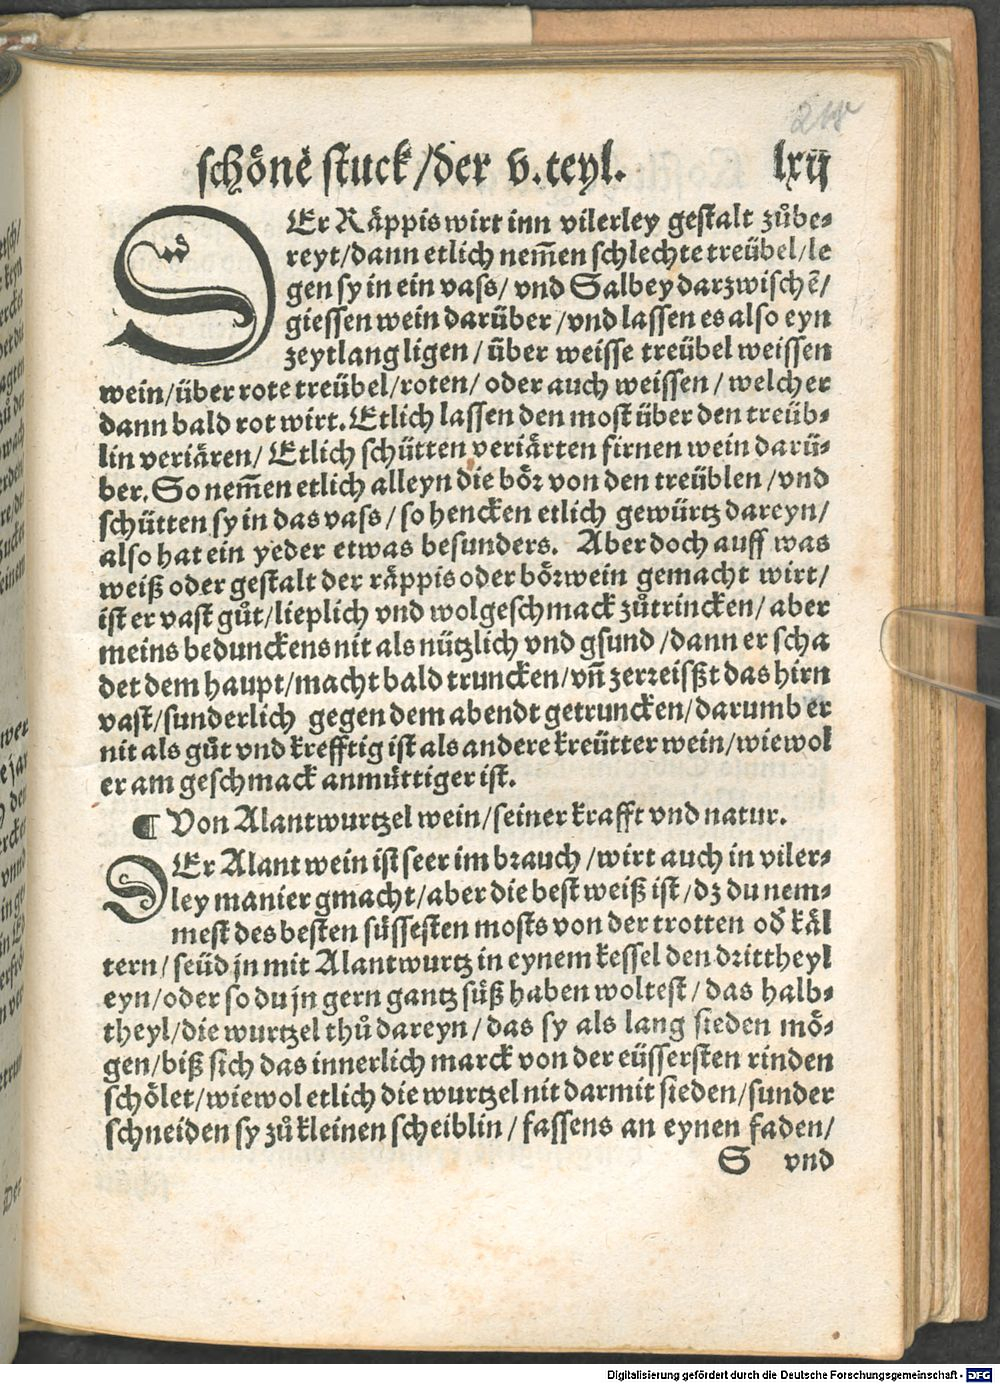 schoͤnē stuck/der v.teyl. lxij
DEr Raͤppis wirt inn vilerley gestalt zuͦbe⸗
reyt/dann etlich nem̄en schlechte treübel/le
gen sy in ein vass/ vnd Salbey darzwischē/
giessen wein daruͤber/vnd lassen es also eyn
zeytlang ligen/ uͤber weisse treübel weissen
wein/uͤber rote treübel/roten/ oder auch weissen/welcher
dann bald rot wirt. Etlich lassen den most uͤber den treüb⸗
lin veriaͤren/ Etlich schütten veriaͤrten firnen wein daruͤ⸗
ber. So nem̄en etlich alleyn die boͤr von den treüblen/vnd
schütten sy in das vass/ so hencken etlich gewürtz dareyn/
also hat ein yeder etwas besunders. Aber doch auff was
weiß oder gestalt der raͤppis oder boͤrwein gemacht wirt/
ist er vast guͦt/lieplich vnd wolgeschmack zuͦtrincken/ aber
meins bedunckens nit als nützlich vnd gsund/dann er scha
det dem haupt/macht bald truncken/vn̄ zerreisßt das hirn
vast/sunderlich gegen dem abendt getruncken/darumb er
nit als guͦt vnd krefftig ist als andere kreütter wein/wiewol
er am geschmack anmuͤttiger ist.
¶ Von Alantwurtzel wein/seiner krafft vnd natur.
DEr Alant wein ist seer im brauch/wirt auch in viler⸗
ley manier gmacht/aber die best weiß ist/dz du nem⸗
mest des besten suͤssesten mosts von der trotten od̓ kaͤl
tern/ seüd jn mit Alantwurtz in eynem kessel den drittheyl
eyn/oder so du jn gern gantz suͤß haben woltest/ das halb⸗
theyl/die wurtzel thuͦ dareyn/ das sy als lang sieden moͤ⸗
gen/biß sich das innerlich marck von der eüssersten rinden
schoͤlet/wiewol etlich die wurtzel nit darmit sieden/sunder
schneiden sy zuͦ kleinen scheiblin/ fassens an eynen faden/
S vnd
Digitalisierung gefördert durch die Deutsche Forschungsgemeinschaft - DFG